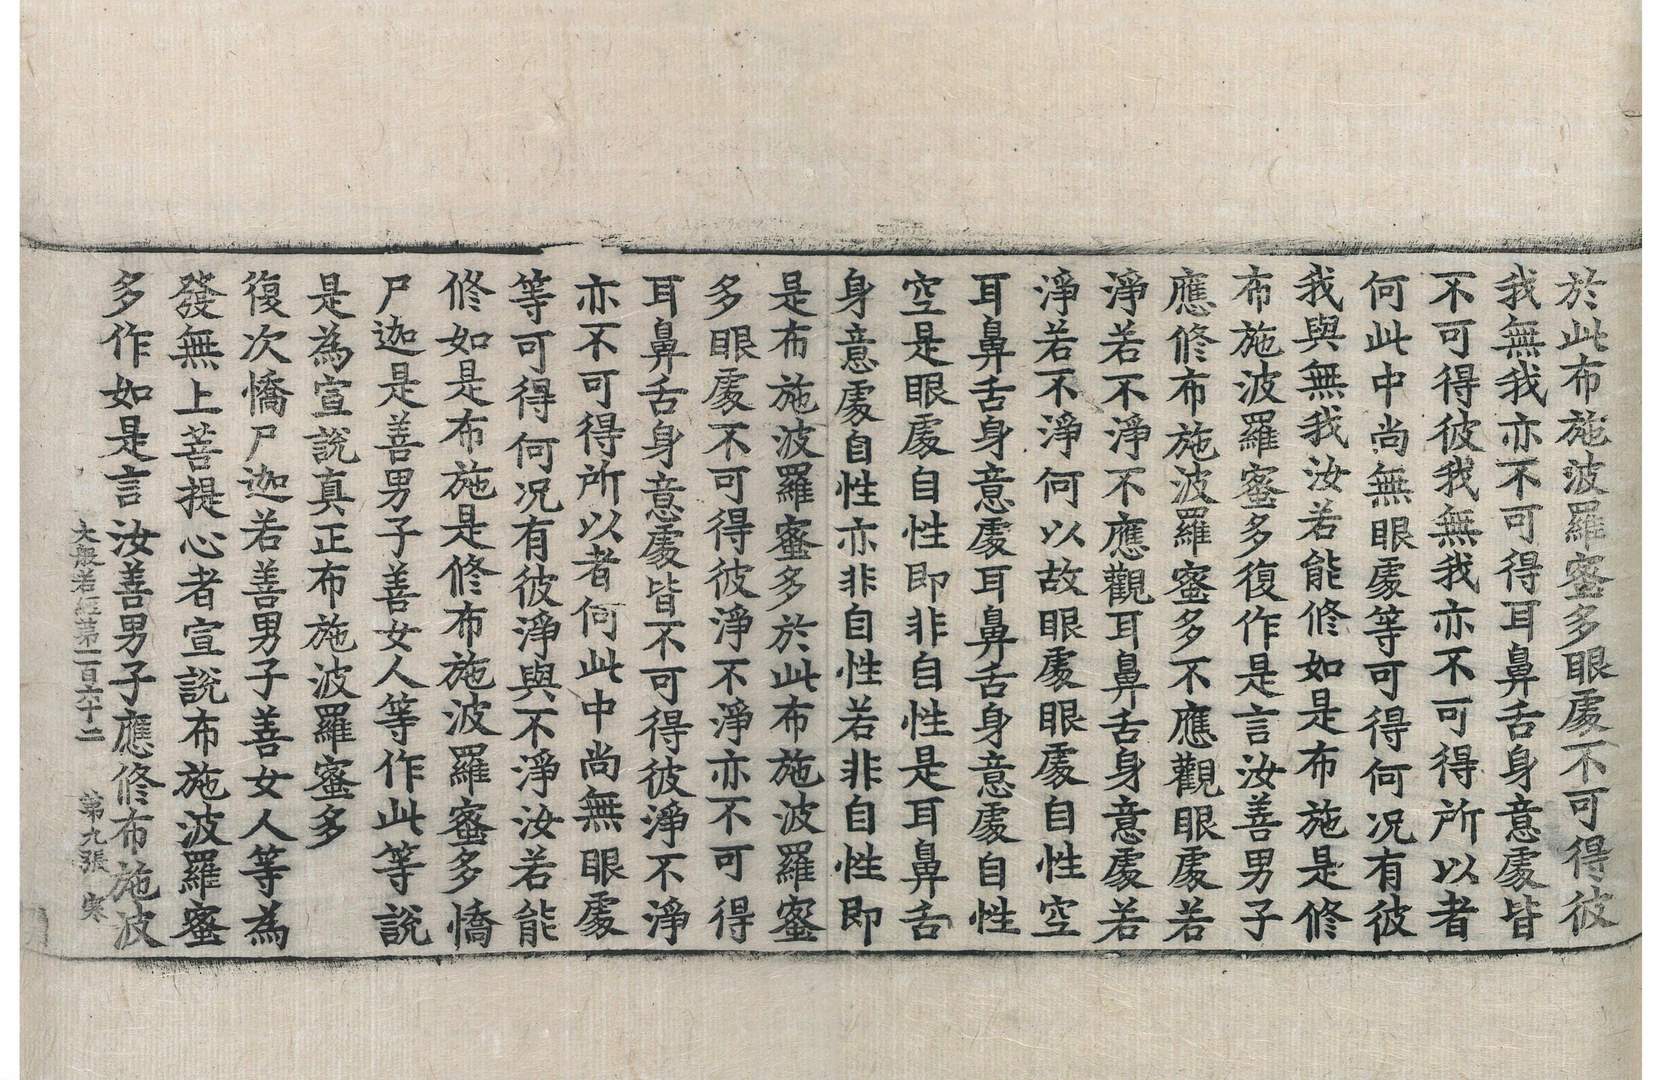 於此布施波羅蜜多眼處不可得彼
我無我亦不可得耳鼻舌身意處皆
不可得彼我無我亦不可得所以者
何此中尚無眼處等可得何况有彼
我與無我汝若能修如是布施是修
布施波羅蜜多復作是言汝善男子
應修布施波羅蜜多不應觀眼處若
淨若不淨不應觀耳鼻舌身意處若
淨若不淨何以故眼處眼處自性空
耳鼻舌身意處耳鼻舌身意處自性
空是眼處自性即非自性是耳鼻舌
身意處自性亦非自性若非自性即
是布施波羅蜜多於此布施波羅蜜
多眼處不可得彼淨不淨亦不可得
耳鼻舌身意處皆不可得彼淨不淨
亦不可得所以者何此中尚無眼處
等可得何况有彼淨與不淨汝若能
修如是布施是修布施波羅蜜多憍
尸迦是善男子善女人等作此等說
是為宣說真正布施波羅蜜多
復次憍尸迦若善男子善女人等為
發無上菩提心者宣說布施波羅蜜
多作如是言汝善男子應修布施波
大般若經第一百六十二 第九張 寒